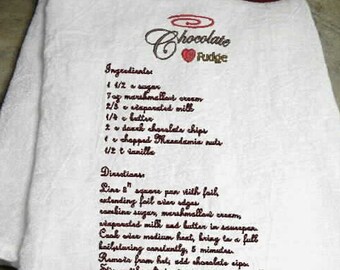 Chocolate
Fudge
Ingredients:
1 1/2 c sugar
7oz marshmallow cream
2/3 c evaporated milk
1/4 c butter
2 c dark chocolate chips
1 c chopped Macadamia nuts
1/2 t vanilla
Directions:
Line 8" square pan with foil
extending foil over edges
combine sugar, marshmallow cream,
evaporated milk and butter in saucepan.
Cook over medium heat, bring to a full
boil,stirring constantly, 5 minutes.
Remove from hot, add chocolate